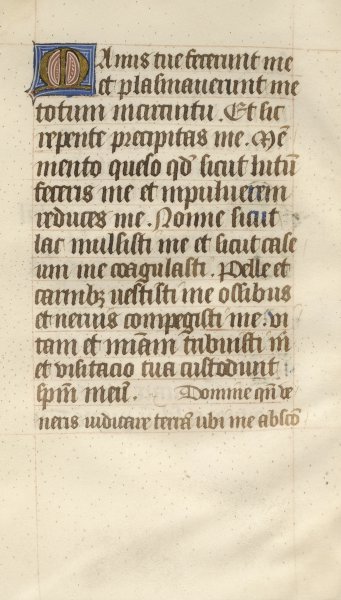 Manus tue fecerunt me
et plasmauerunt me
totum in circuitu. Et sic
repente precipitas me. Mē
mento queso qd̄ sicut lutū
feceris me et in puluerem
reduces me. Nonne sicut
lac mulsisti me et sicut case
um me coagulasti. Pelle et
carnibꝫ uestisti me ossibus
et neruis compegisti me. vi
tam et miam̄ tribuisti m̄
et visitacio tua custodiuit
spm̄ meū. Domine qn̄ ve
neris iudicare terrā ubi me absco